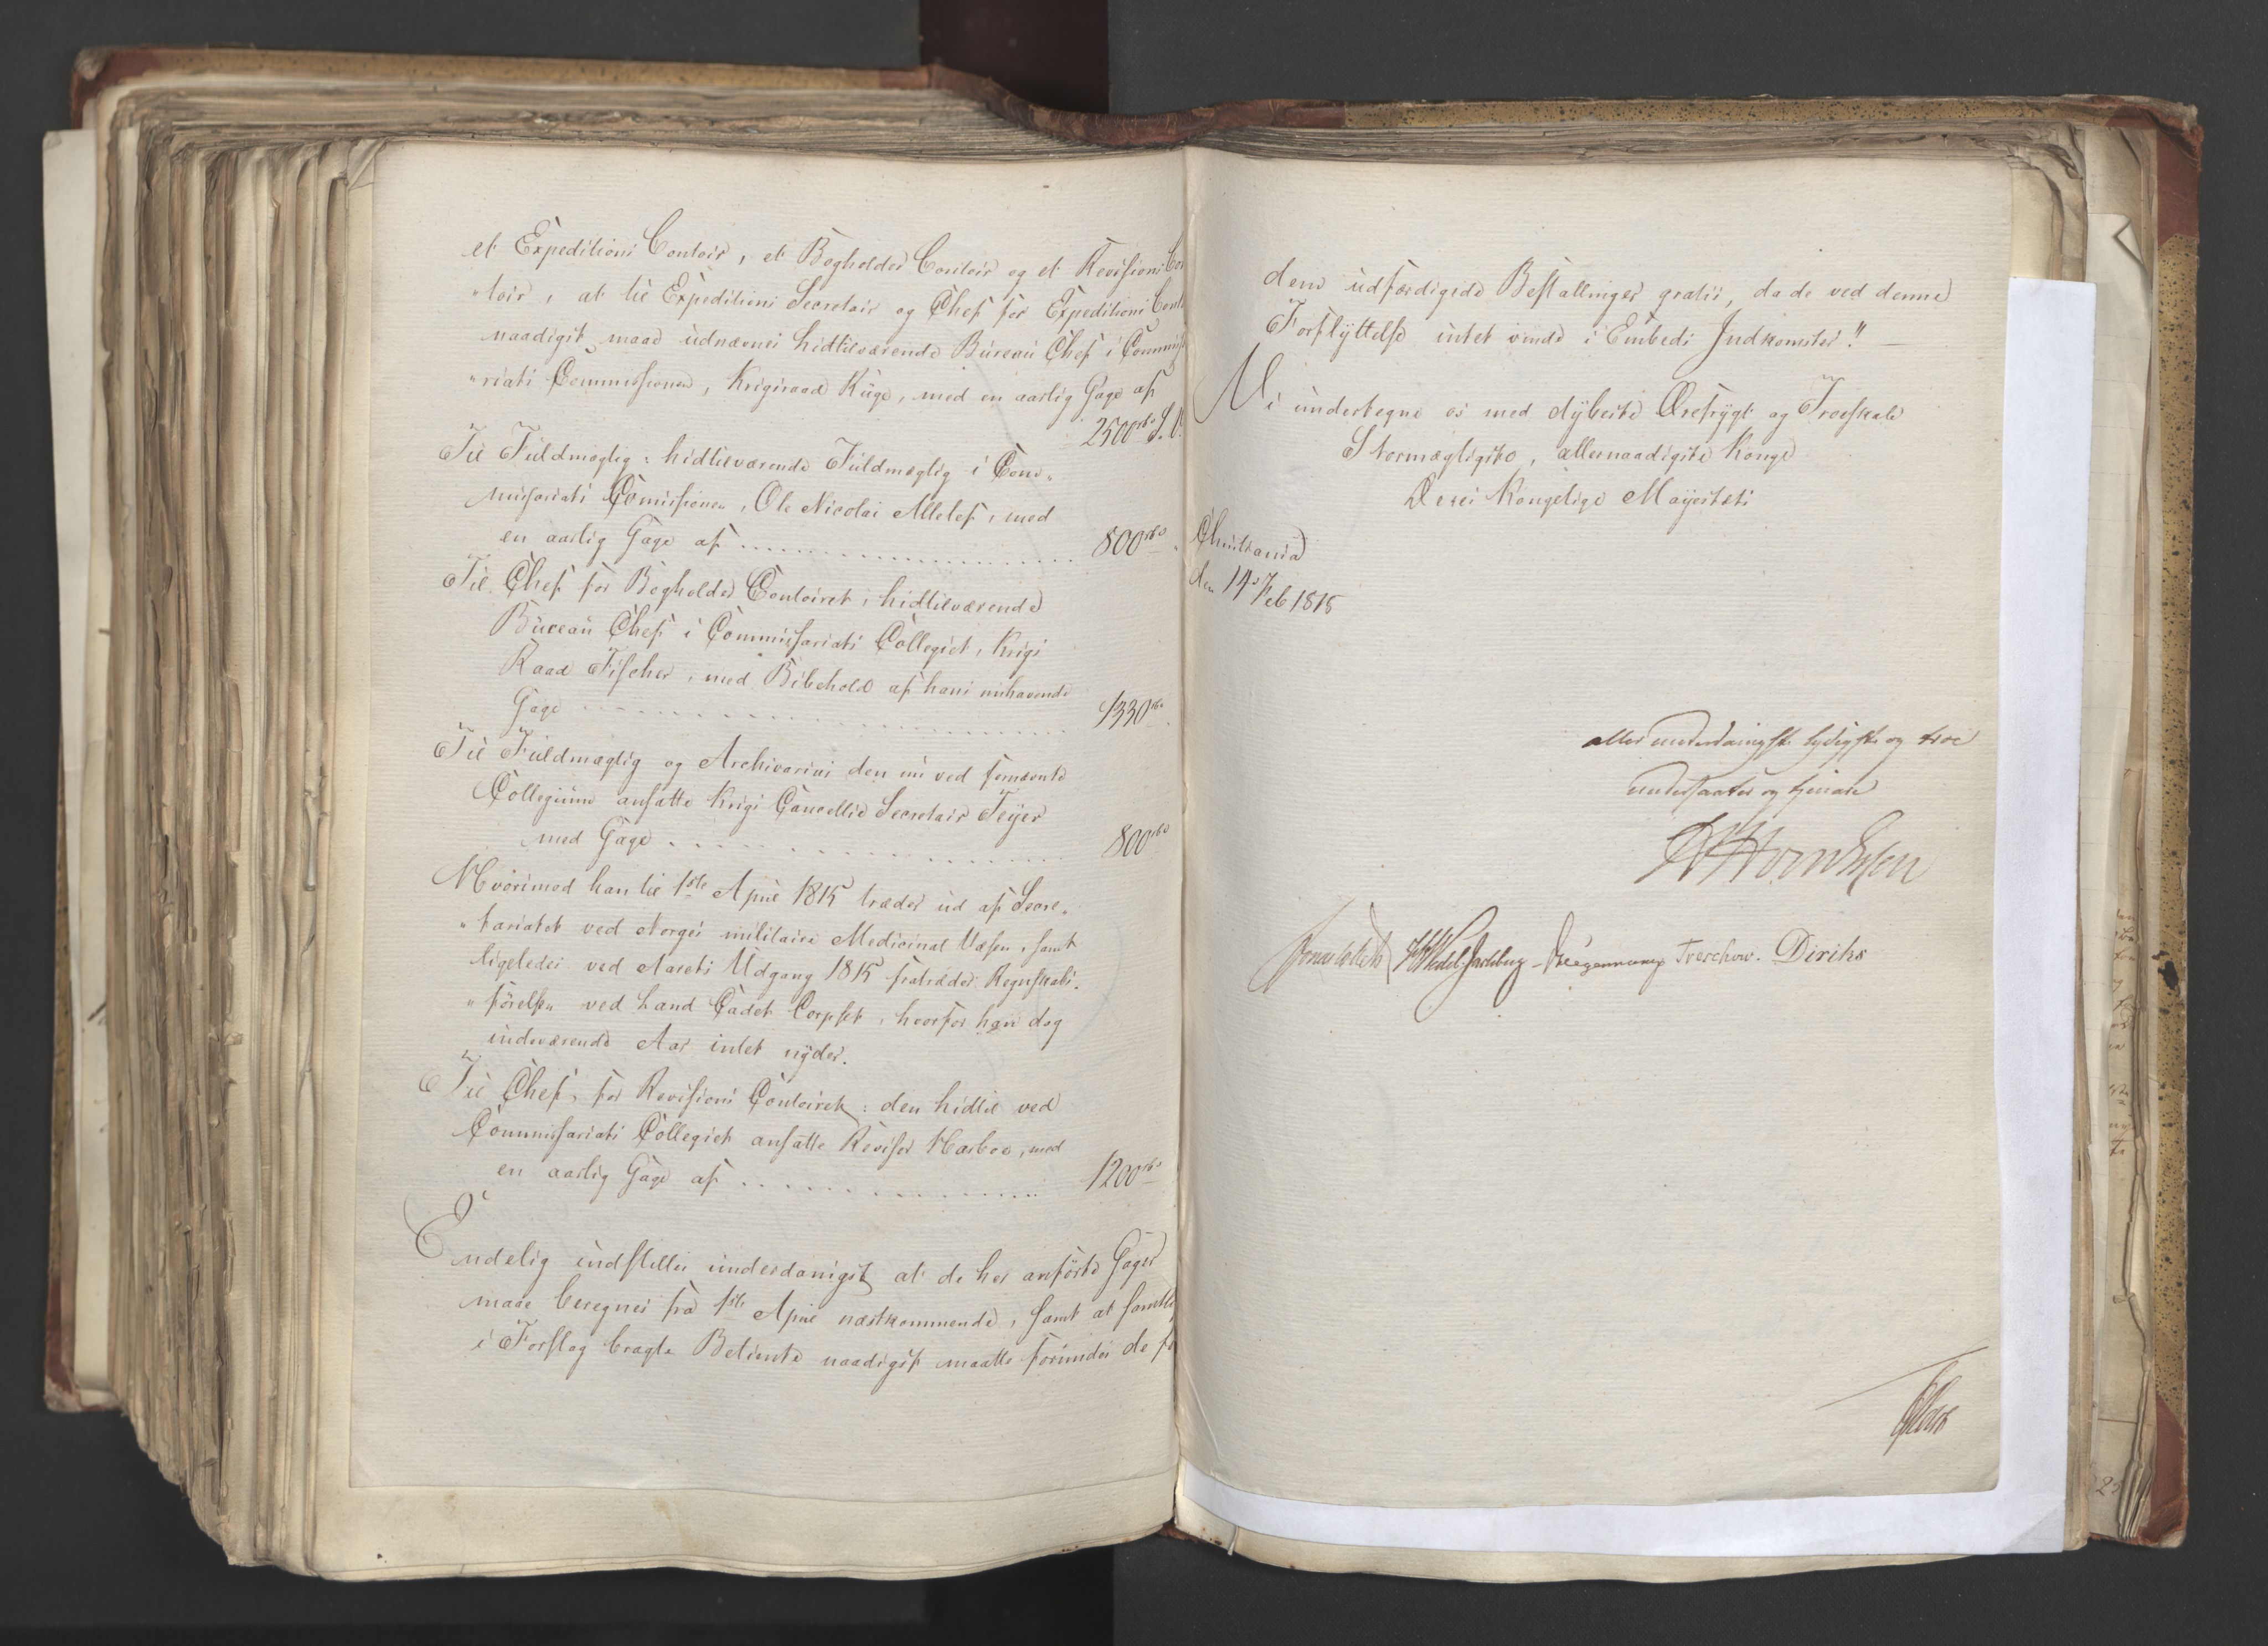 et Expeditions Contoir, et Bogholder Contoir og et Revisions Con
"toir, at til Expeditions Secretair og Chef for Expeditions Cont
naadigst maae udnævnes hidtilværende Bureau Chef i Commiss
"riats Commissionen, Krigsraad Ruge, med en aarlig Gage af
2500 rbd S. V.
Til Fuldmægtig: hidtilværende Fuldmægtig i Com-
missariats Comissionen, Ole Nicolai Alleless, med
en aarlig Gage af . . . . . . . . . . 800 rbd
Til Chef for Bogholder Contoiret, hidtilværende
Bureau Chef i Commissariats Collegiet, Krigs
Raad Fischer, med Bibehold af hans nuhavende
Gage . . . . . . . . . . 1330 rbd
Til Fuldmægtig og Archivarius den nu ved fornævnte
Collegium ansatte Krigs Cancellie Secretair Feyer
med Gage . . . . . . . . . . 800 rbd
Hvorimod han til 1ste April 1815 træder ud af Secre-
"tariatet ved Norges militaire Medicinal Væsen, samt
ligeledes ved Aarets Udgang 1815 fratræder Regnskabs-
"førelsen ved Land Cadet Corpset, hvorfor han dog
indeværende Aar intet nyder.
Til Chef, for Revisions Contoiret: den hidtil ved
Commissariats Collegiet ansatte Revisor Harboe, med
en aarlig Gage af . . . . . . . . . . 1200 rbd
Endelig indstilles underdanigst at de her anførte Gager
maae beregnes fra 1ste April næstkommende, samt at samtl
i Forslag bragte Betiente naadigst maatte forundes de fo
dem udfærdigede Bestallinger gratis, da de ved denne
Forflyttelse intet vinde i Embeds Indkomster."
Vi undertegne os med dybeste Ærefrygt og Troeskab
Stormægtigste, allernaadigste Konge
Deres Kongelige Mayestæts
Christiania
den 14 Feb 1815
aller underdanigste lydigste og troe
undersaatter og tjenere
Jonas Collett HWedel Jarlsberg Treschow. Diriks